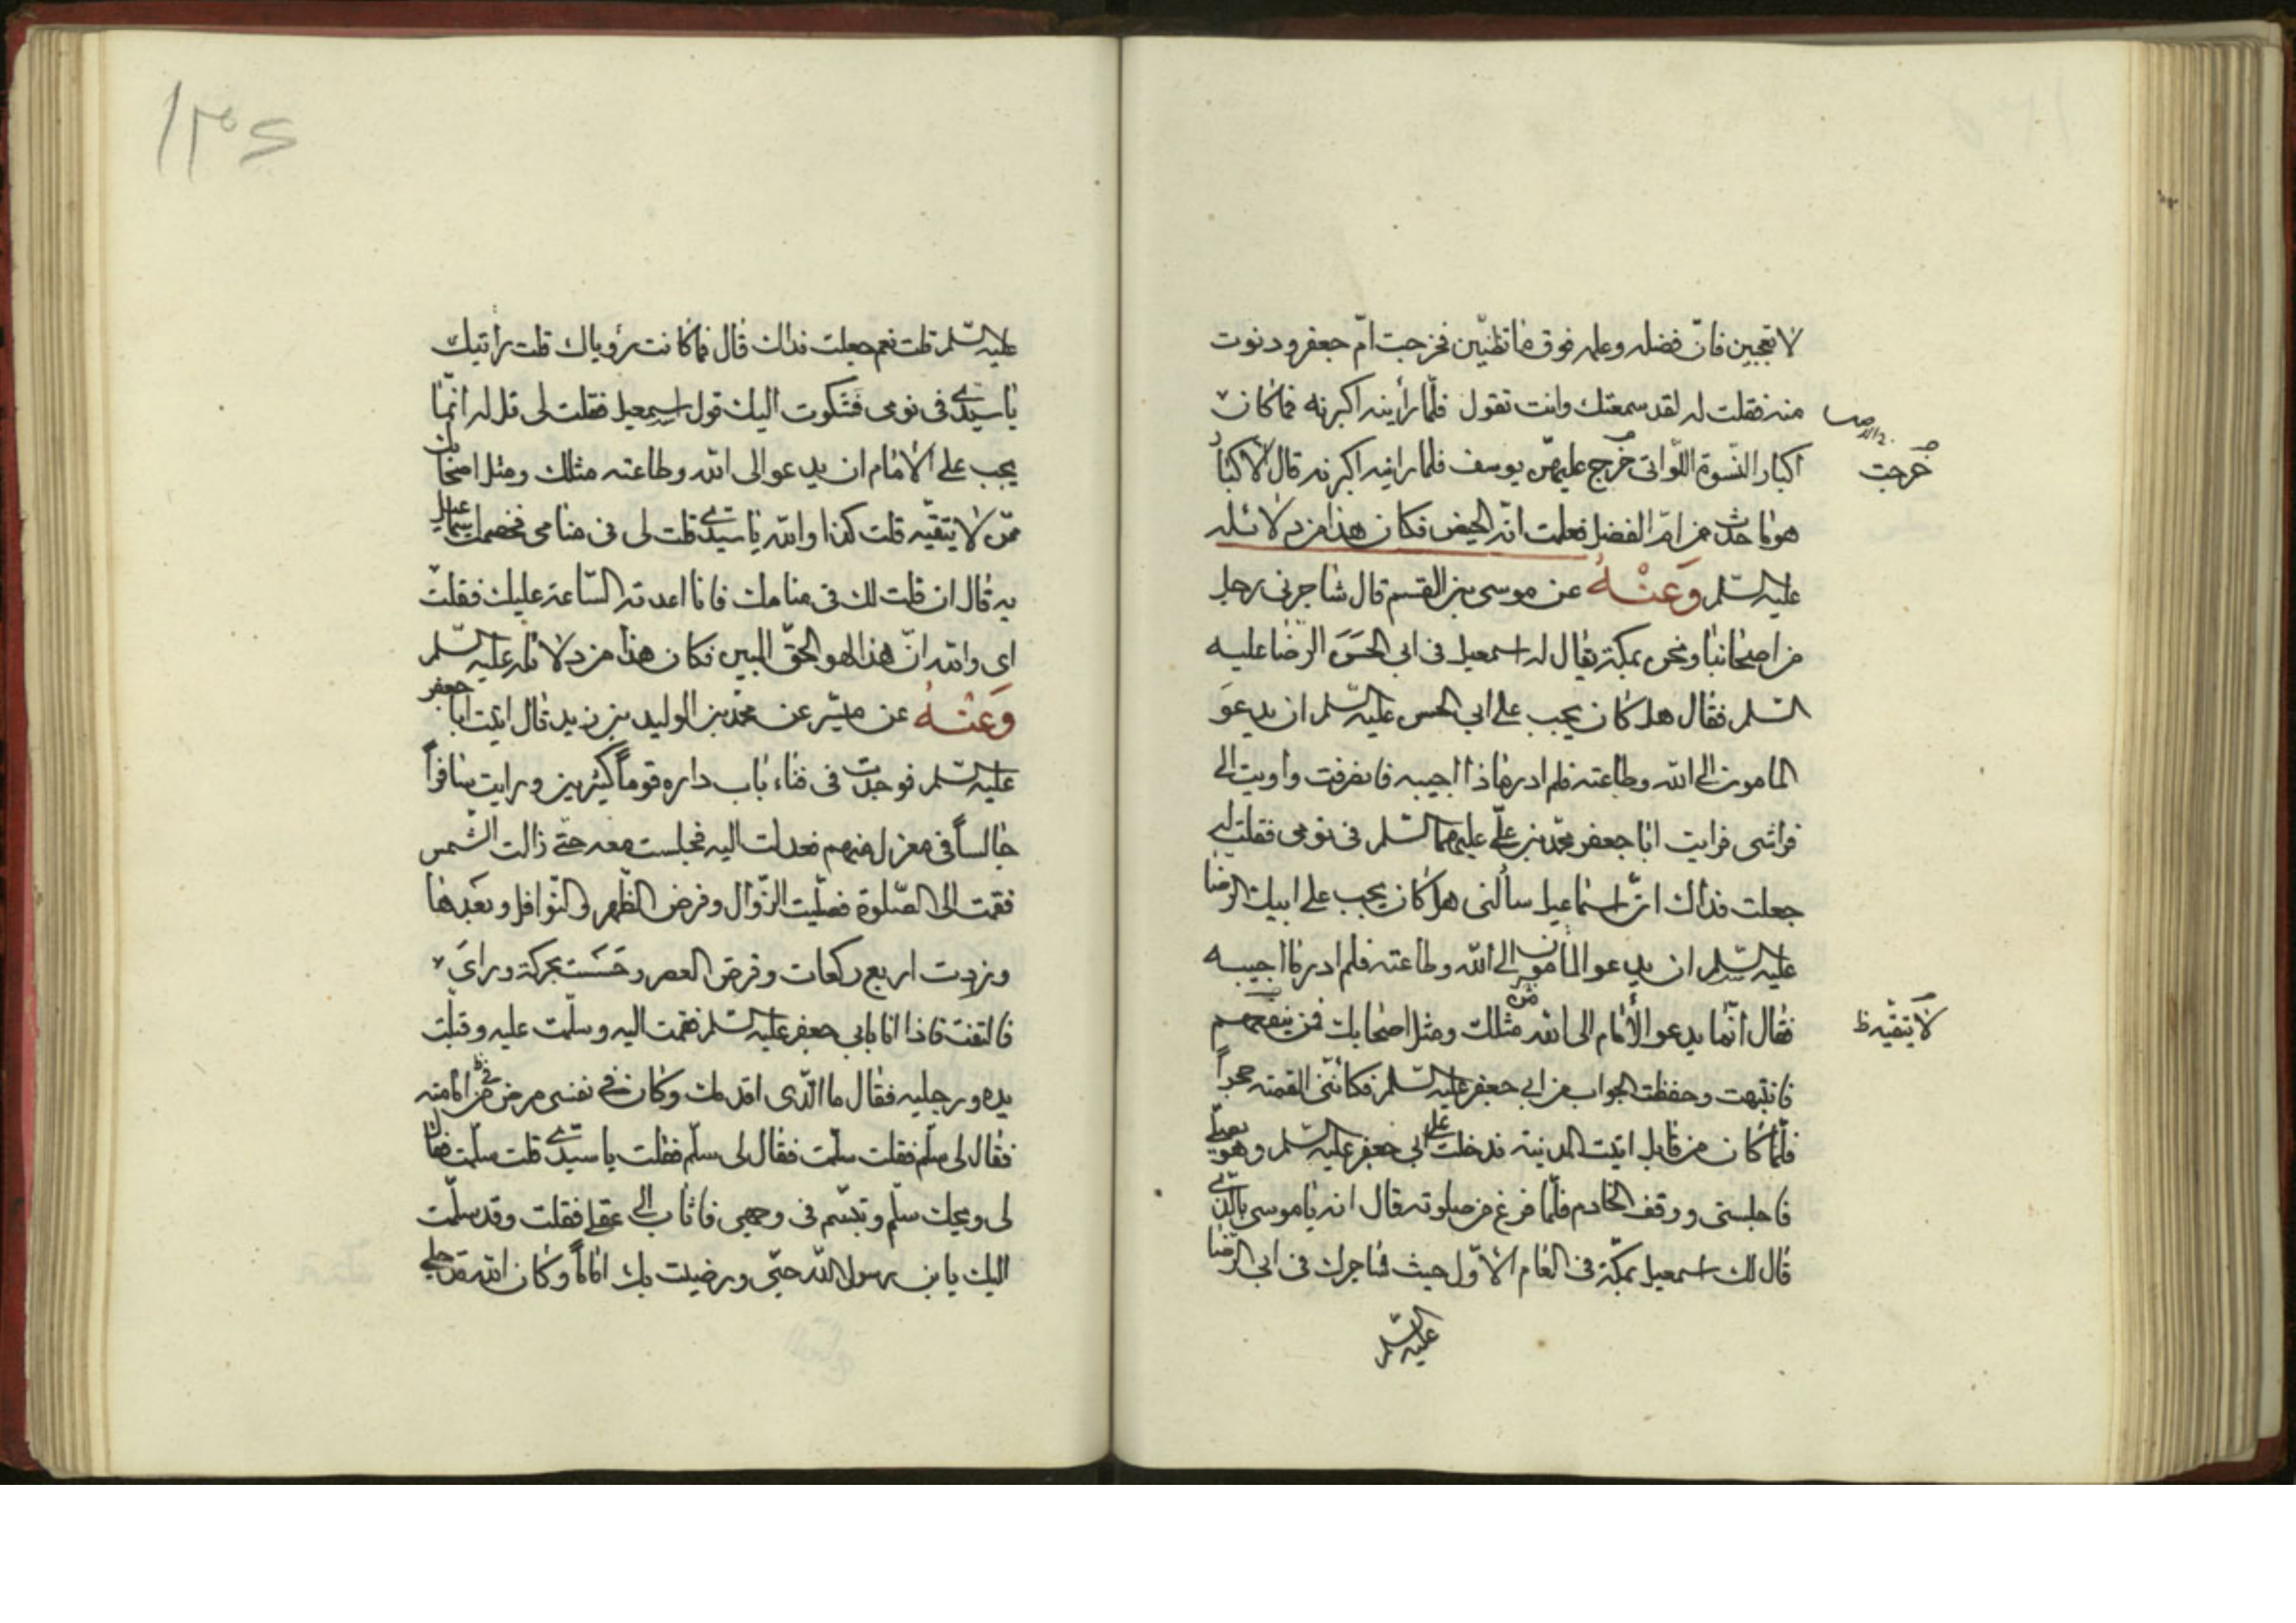 لا تعجبين فانّ فضله وعلمه فوق ما تظنّين فخرجت امّ جعفر ودنوت
منه فقلت له لقد سمعتك وانت تقول فلمّا رأينه اكبرنه فما كان
اكبار النّسوة اللّواتى خرج عليهنّ يوسف فلما راينه اكبرنه قال لاكبار
خرجت
هو ما حدث من امّ الفضل فعلمت انّه الحيض فكان هذا من دلائله
عليه السّلم وَعَنْهُ عن موسى بن القسم قال شاجرنى رجل
من اصحابنا ونحن بمكّة يقال له اسمعيل فى ابى الحَسَن الرّضا عليه
السّلم فقال هل كان يجب على ابى الحسن عليه السّلم ان يدعوَ
المامون الى الله وطاعته فلم ادر ماذا اجيبه فانصرفت واويت الى
فراشى فرايت ابا جعفر محمّد بن علىّ عليهما السّلم فى نومى فقلت له
جعلت فداك انّ اسماعيل سألنى هل كان يجب على ابيك الرضا
عليه السّلم ان يدعو المامون الى الله وطاعته فلم ادر ما اجيبه
فقال انّما يدعو الأمام الى الله من مثلك ومثل اصحابك فمن
لا يتقيه ظ
فانتبهت وحفظت الجواب من ابى جعفر عليه السّلم فكانّنى القمته حجراً
فلمّا كان من قابل اتيت المدينة فدخلت على ابى جعفر عليه السّلم وهو يصلّى
فاجلسنى ووقف الخادم فلمّا فرغ من صلوته قال انه يا موسى ما الّذى
قال لك اسمعيل بمكّة فى العام الاوّل حيث شاجرك فى ابى الرّضا
عليه السّلم
١٣٤
عليه السّلم قلت نعم جعلت فداك قال فما كانت رؤياك قلت رأتيك
يا سيّدى فى نومى فَشكوت اليك قول اسمعيل فقلت لى قل له انّما
يجب على الأمام ان يدعو الى الله وطاعته مثلك ومثل اصحابك
ممّن لا يتقيّه قلت كذا والله يا سيّدى قلت لى فى منامى فخصمت اسماعيل
به قال ان قلت لك فى منامك فانا اعدته السّاعة عليك فقلت
اى والله انّ هذا لهو الحقّ المبين فكان هذا من دلائله عليه السّلم
وَعَنْهُ عن ميسّر عن محمّد بن الوليد بن يزيد قال اتيت ابا جعفر
عليه السّلم فوجدت فى فناء باب داره قوماً كثيرين ورايت مسافراً
جالساً فى معزل منهم فعدلت اليه فجلست معه حتّى زالت الشّمس
فقمت الى الصّلوة فصلّيت الزّوال وفرض الظّهر والنّوافل وبَعَدها
وزدت اربع ركعات وفرض العصر وحَسَست بحركة وراىَ
فالتفت فاذا انا بابى جعفر عليه السّلم فقمت اليه وسلّمت عليه وقبلت
يده ورجليه فقال ما الّذى اقدمك وكان فى نفسى مرض من امامته
فقال لى سلّم فقلت سلّمت فقال لى سلّم فقلت يا سيّدى قلت سلّمت فقال
لى ويحك سلّم وتبسّم فى وجهى فاثاب الى عقلى فقلت وقد سلّمت
اليك يابن رسول الله حتّى ورضيت بك اماماً وكان الله قد جلى